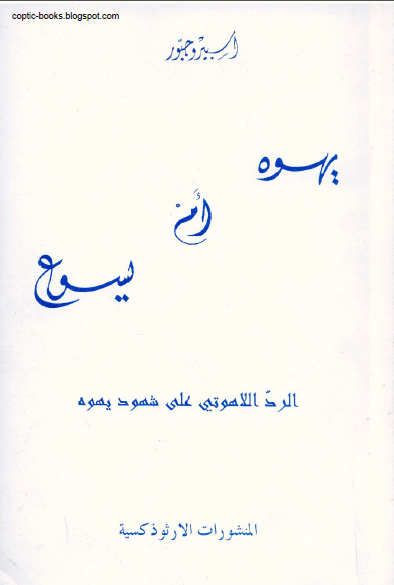 coptic-books.blogspot.com
أسبيرو جبّور
يهوه
أمْ
يسوع
الردّ اللاهوتي على شهود يهوه
المنشورات الارثوذكسية